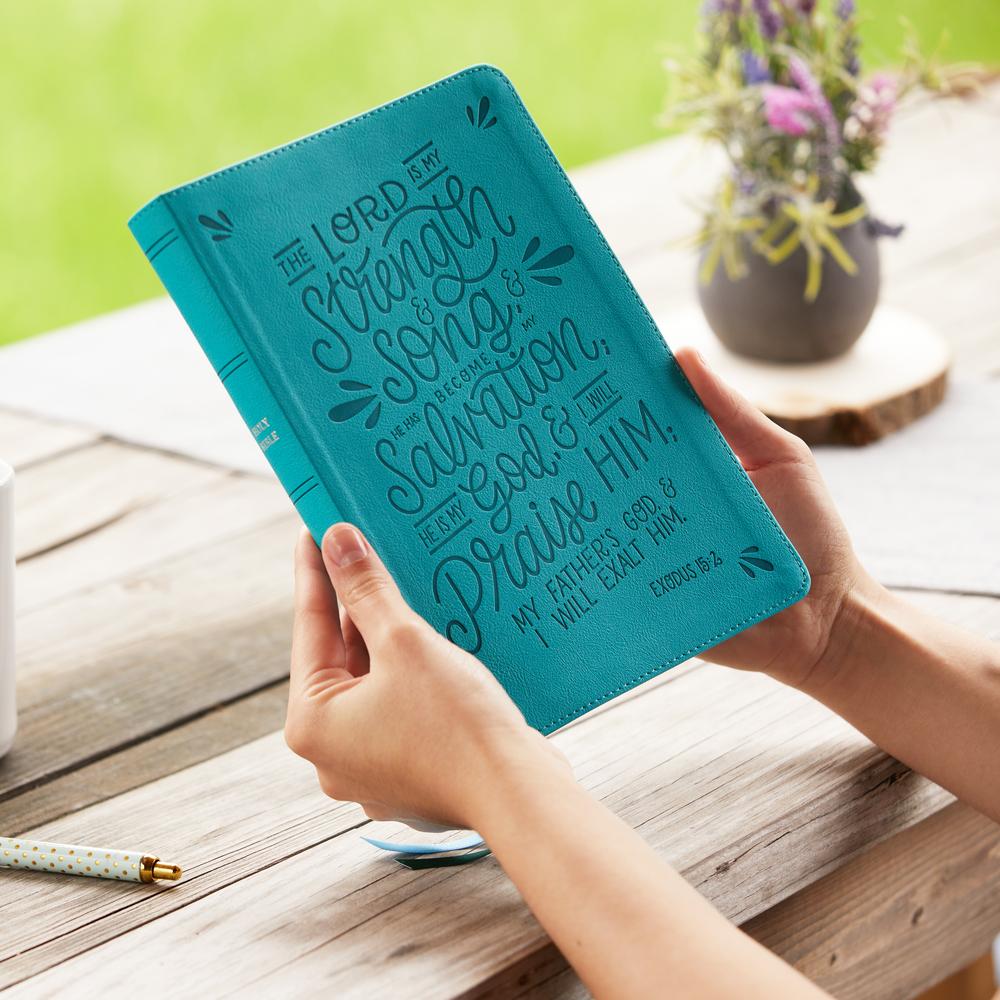 THE LORD IS MY
Strength
&
Song, &
HE HAS BECOME MY
Salvation;
HE IS MY God, & I WILL
Praise HIM;
MY FATHER'S GOD, &
I WILL EXALT HIM.
EXODUS 15:2
HOLY
BIBLE